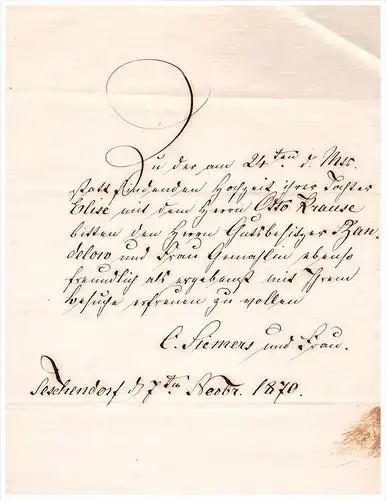 Zu der am 24ten d. Mts.
statt findenden Hochzeit ihrer Tochter
Elise mit dem Herrn Otto Krause
bitten den Herrn Gutsbesitzer Zan
delow und Frau Gemahlin ebenso
freundlich als ergebenst mit Ihrem
Besuche erfreuen zu wollen
C. Siemers und Frau.
Teschendorf d 7ten Novbr. 1870.